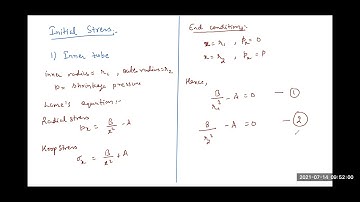 Initial Stress:
1) Inner tube
Inner radius = r₁, outer radius = r₂
p = shrinkage pressure
Lame's equation:-
Radial stress
pₓ = B/x² - A
Hoop stress
σₓ = B/x² + A
End conditions:-
x = r₁ , pₓ = 0
x = r₂ , pₓ = P
Hence,
B/r₁² - A = 0 — ①
B/r₂² - A = 0 — ②
2021-07-14 09:52:00